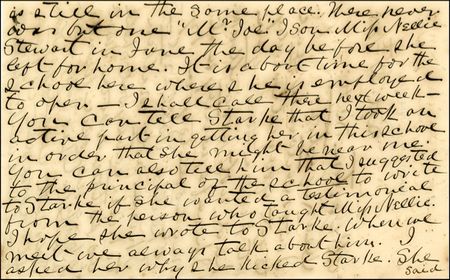 is still in the same place. There never
was but one "Mr. Joe" I saw Miss Nellie
Stewart in June the day before she
left for home. It is about time for the
school here where she is employed
to open — I shall call there next week —
You can tell Starke that I took an
active part in getting her in this school
in order that she might be near me.
You can also tell him that I suggested
to the principal of the school to write
to Starke if she wanted a testimonial
from the person who taught Miss Nellie.
I hope she wrote to Starke. When we
meet we always talk about him. I
asked her why she kicked Starke. She
said